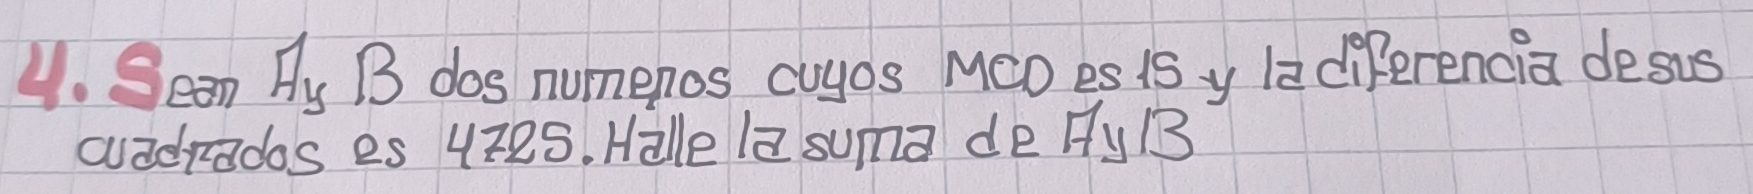 4. Sean A y B dos numeros cuyos MCD es 15 y la diferencia de sus
cuadrados es 4725. Halle la suma de A y B